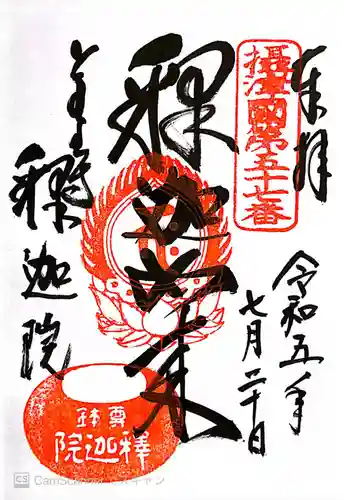 奉拝
攝津國第五十七番
令和五年
七月二十日
釋迦如来
釋迦院
尊鉢
釋迦院
CS CamScanner でスキャン